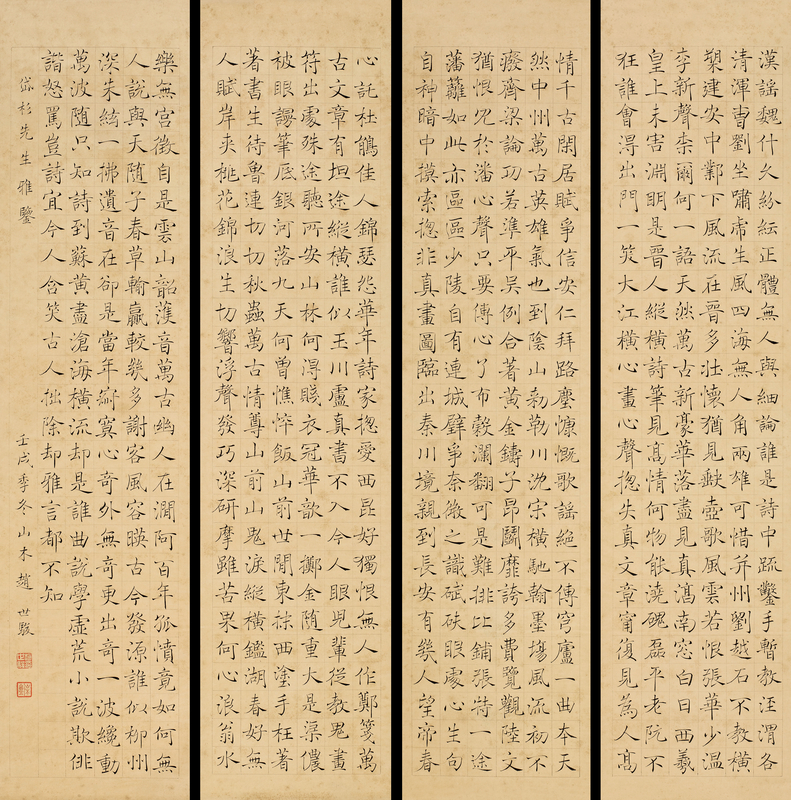 漢謠魏什久紛紜正體無人與細論誰是詩中疏鑿手暫教涇渭各
清渾曹劉坐嘯虎生風四海無人角兩雄可惜并州劉越石不教橫
槊建安中鄴下風流在晉多壯懷猶見缺壺歌風雲若恨張華少溫
李新聲柰爾何一語天然萬古新豪華落盡見真淳南窓白日西羲
皇上未害淵明是晉人縱橫詩筆見高情何物能澆磈磊平老阮不
狂誰會淂出門一笑大江橫心畫心聲揔失真文章甯復見為人高
情千古閑居賦爭信安仁拜路塵慷慨歌謠絕不傳穹廬一曲本天
然中州萬古英雄氣也到陰山勑勒川沈宋橫馳翰墨場風流初不
癈齊梁論功若準平吳例合著黃金鑄子昂鬭靡誇多費覽觀陸文
猶恨冗於潘心聲只要傳心了布穀瀾翻可是難排比鋪張特一途
藩籬如此亦區區少陵自有連城璧爭奈微之識碔砆眼處心生句
自神暗中摸索揔非真畫圖臨出秦川境親到長安有幾人望帝春
心託杜鵑佳人錦瑟怨華年詩家揔愛西昆好獨恨無人作鄭箋萬
古文章有坦途縱橫誰似玉川盧真書不入今人眼兒輩從教鬼畫
符出處殊途聽所安山林何得賤衣冠華歆一擲金隨重大是渠儂
被眼謾筆底銀河落九天何曾憔悴飯山前世間東抹西塗手枉著
著書生待魯連切切秋蟲萬古情尊山前山鬼淚縱橫鑑湖春好無
人賦岸夾桃花錦浪生切響浮聲發巧深研摩雖苦果何心浪翁水
樂無宮徵自是雲山韶濩音萬古幽人在澗阿百年孤憤竟如何無
人說與天隨子春草輸贏較幾多謝客風容暎古今發源誰似柳州
深朱絃一拂遺音在卻是當年寂寞心奇外無奇更出奇一波纔動
萬波隨只知詩到蘇黃盡滄海橫流却是誰曲說學虛荒小說欺俳
諧怒罵豈詩宜今人含笑古人拙除却雅言都不知
岱杉先生雅鑒
壬戌季冬山木趙世駿